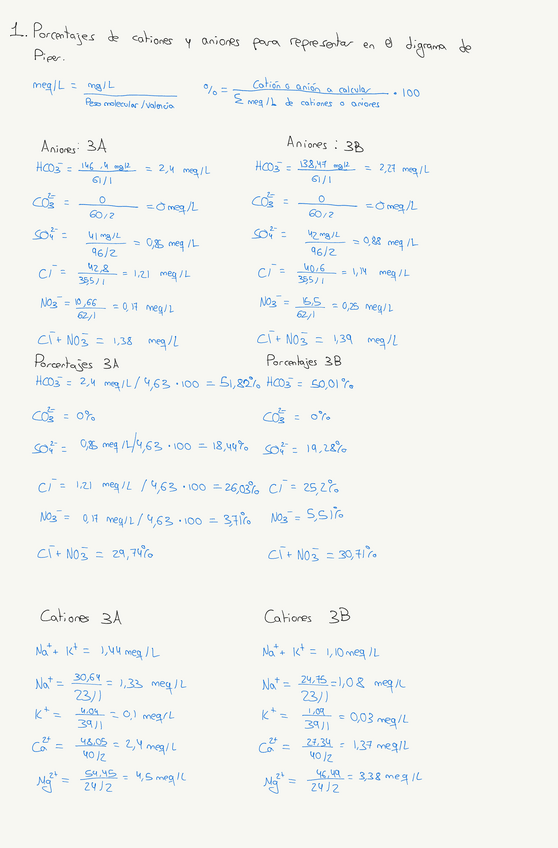 1. Porcentajes de cationes y aniones para representar en el digrama de
Piper.
meq/L = mg/L / Peso molecular/valencia
% = Catión o anión a calcular / Σ meq/L de cationes o aniones · 100
Aniones: 3A
HCO₃⁻ = 146,4 mg/L / 61/1 = 2,4 meq/L
CO₃²⁻ = 0 / 60/2 = 0 meq/L
SO₄²⁻ = 41 mg/L / 96/2 = 0,85 meq/L
Cl⁻ = 42,8 / 35,5/1 = 1,21 meq/L
NO₃⁻ = 10,66 / 62/1 = 0,17 meq/L
Cl⁻ + NO₃⁻ = 1,38 meq/L
Aniones: 3B
HCO₃⁻ = 138,47 mg/L / 61/1 = 2,27 meq/L
CO₃²⁻ = 0 / 60/2 = 0 meq/L
SO₄²⁻ = 42 mg/L / 96/2 = 0,88 meq/L
Cl⁻ = 40,6 / 35,5/1 = 1,14 meq/L
NO₃⁻ = 15,5 / 62/1 = 0,25 meq/L
Cl⁻ + NO₃⁻ = 1,39 meq/L
Porcentajes 3A
HCO₃⁻ = 2,4 meq/L / 4,63 · 100 = 51,82%
CO₃²⁻ = 0%
SO₄²⁻ = 0,85 meq/L / 4,63 · 100 = 18,44%
Cl⁻ = 1,21 meq/L / 4,63 · 100 = 26,03%
NO₃⁻ = 0,17 meq/L / 4,63 · 100 = 3,71%
Cl⁻ + NO₃⁻ = 29,74%
Porcentajes 3B
HCO₃⁻ = 50,01%
CO₃²⁻ = 0%
SO₄²⁻ = 19,28%
Cl⁻ = 25,2%
NO₃⁻ = 5,51%
Cl⁻ + NO₃⁻ = 30,71%
Cationes 3A
Na⁺ + K⁺ = 1,44 meq/L
Na⁺ = 30,64 / 23/1 = 1,33 meq/L
K⁺ = 4,04 / 39/1 = 0,1 meq/L
Ca²⁺ = 48,05 / 40/2 = 2,4 meq/L
Mg²⁺ = 54,45 / 24/2 = 4,5 meq/L
Cationes 3B
Na⁺ + K⁺ = 1,10 meq/L
Na⁺ = 24,75 / 23/1 = 1,08 meq/L
K⁺ = 1,09 / 39/1 = 0,03 meq/L
Ca²⁺ = 27,34 / 40/2 = 1,37 meq/L
Mg²⁺ = 46,49 / 24/2 = 3,38 meq/L